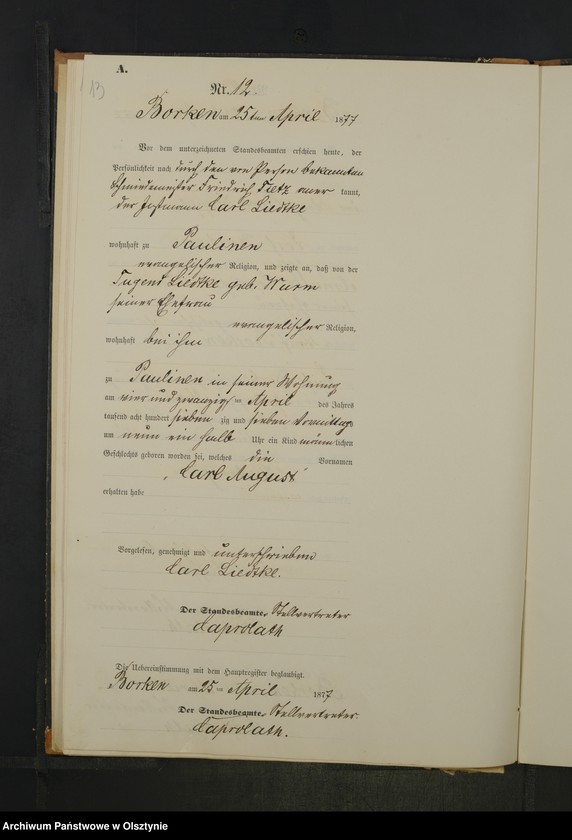 A.
13)
Nr. 12.
Borken am 25ten April 1877
Vor dem unterzeichneten Standesbeamten erschien heute, der
Persönlichkeit nach durch den von Person bekannten
Schmiedemeister Friedrich kannt,
der Instmann Carl Liedtke
wohnhaft zu Paulinen
evangelischer Religion, und zeigte an, daß von der
Liedtke geb. Wurm
seiner Ehefrau
evangelischer Religion,
wohnhaft bei ihm
zu Paulinen in seiner Wohnung
am vier und zwanzigs= April des Jahres
tausend acht hundert sieben zig und sieben Vormittags
um neun ein halb Uhr ein Kind männlichen
Geschlechts geboren worden sei, welches die Vornamen
Carl August
erhalten habe
Vorgelesen, genehmigt und unterschrieben
Carl Liedtke.
Der Standesbeamte. Stellvertreter
Kaprolath
Die Uebereinstimmung mit dem Hauptregister beglaubigt.
Borken am 25= April 1877
Der Standesbeamte. Stellvertreter.
Kaprolath.
Archiwum Państwowe w Olsztynie